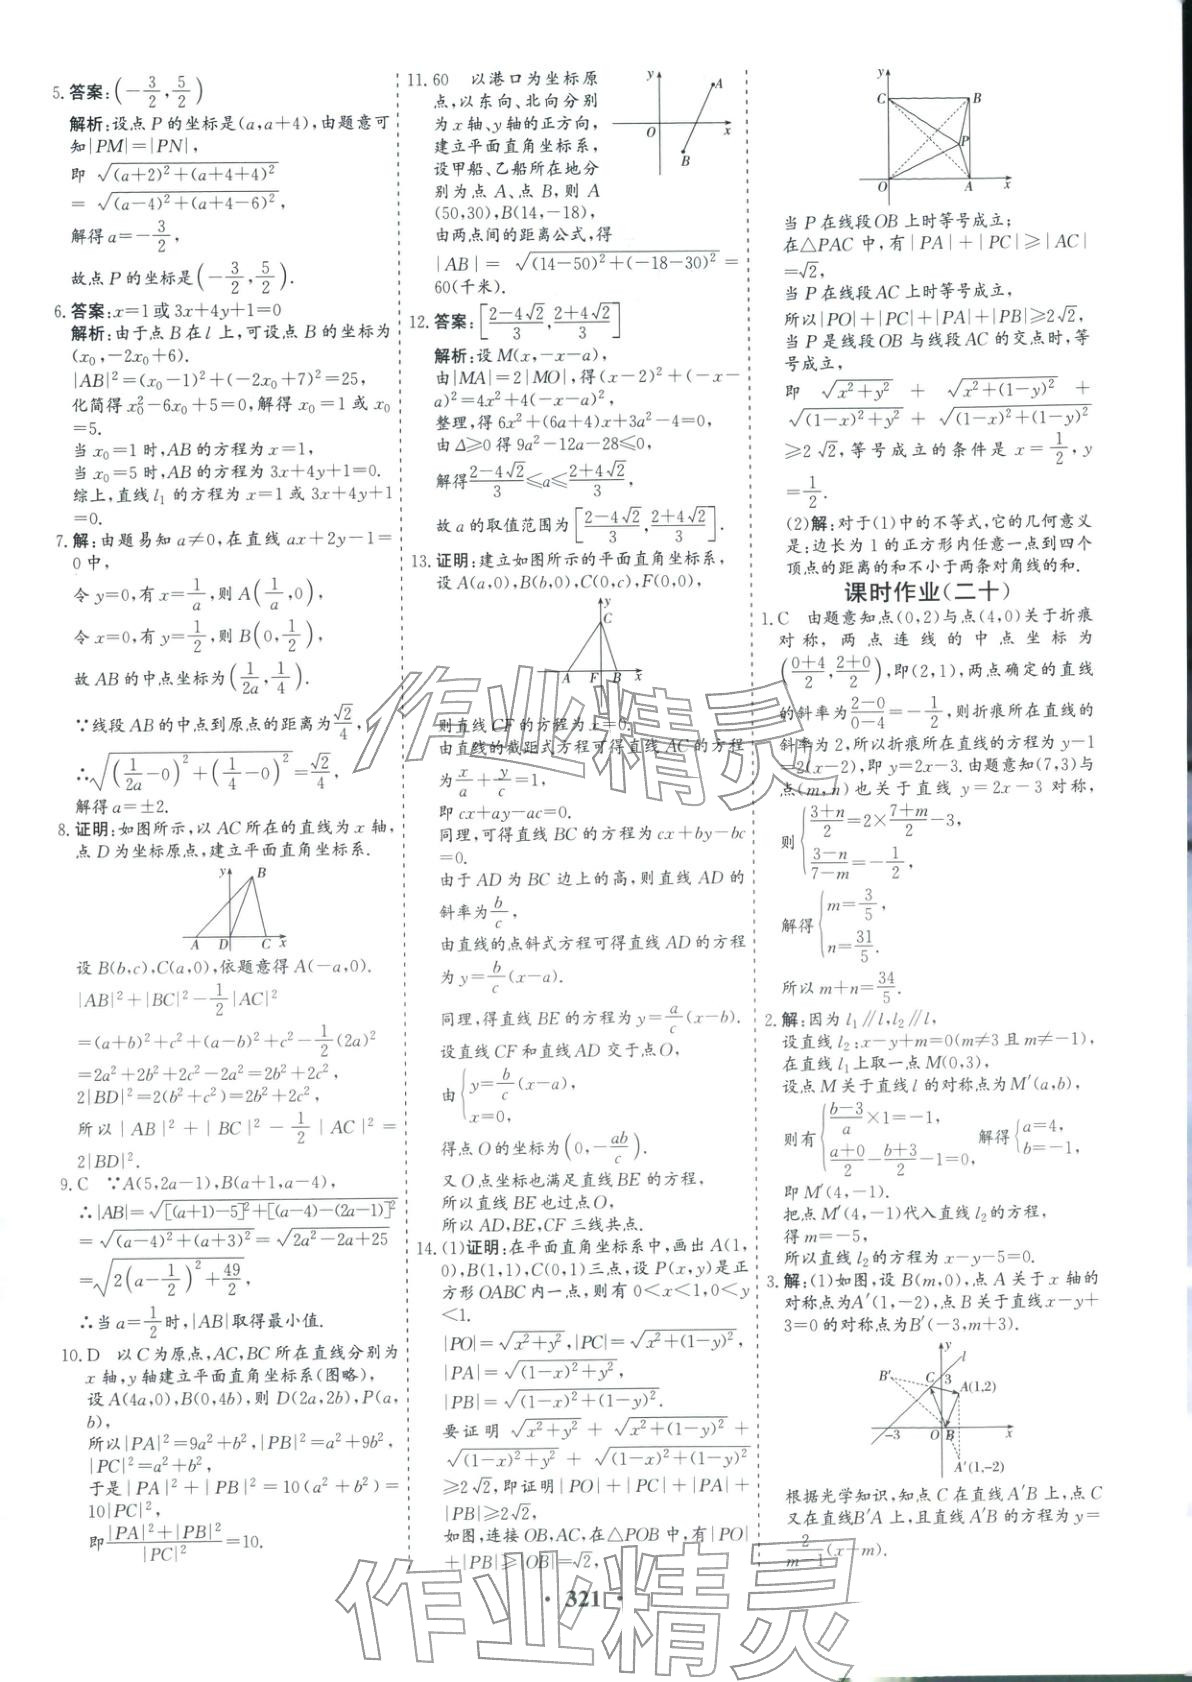 5. 答案:(-3/2,5/2)
解析:设点 P 的坐标是(a,a+4),由题意可
知|PM|=|PN|,
即 √((a+2)²+(a+4+4)²)
= √((a-4)²+(a+4-6)²),
解得 a=-3/2,
故点 P 的坐标是(-3/2,5/2).
6. 答案:x=1 或 3x+4y+1=0
解析:由于点 B 在 l 上,可设点 B 的坐标为
(x₀,-2x₀+6).
|AB|²=(x₀-1)²+(-2x₀+7)²=25,
化简得 x₀²-6x₀+5=0,解得 x₀=1 或 x₀
=5.
当 x₀=1 时,AB 的方程为 x=1,
当 x₀=5 时,AB 的方程为 3x+4y+1=0.
综上,直线 l₁ 的方程为 x=1 或 3x+4y+1
=0.
7. 解:由题易知 a≠0,在直线 ax+2y-1=
0 中,
令 y=0,有 x=1/a,则 A(1/a,0),
令 x=0,有 y=1/2,则 B(0,1/2),
故 AB 的中点坐标为(1/2a,1/4).
∵线段 AB 的中点到原点的距离为√2/4,
∴√((1/2a-0)²+(1/4-0)²)=√2/4,
解得 a=±2.
8. 证明:如图所示,以 AC 所在的直线为 x 轴,
点 D 为坐标原点,建立平面直角坐标系.
y B
A D C x
设 B(b,c),C(a,0),依题意得 A(-a,0).
|AB|²+|BC|²-1/2|AC|²
=(a+b)²+c²+(a-b)²+c²-1/2(2a)²
=2a²+2b²+2c²-2a²=2b²+2c²,
2|BD|²=2(b²+c²)=2b²+2c²,
所以|AB|²+|BC|²-1/2|AC|²=
2|BD|².
9. C ∵A(5,2a-1),B(a+1,a-4),
∴|AB|=√([(a+1)-5]²+[(a-4)-(2a-1)]²)
=√((a-4)²+(a+3)²)=√(2a²-2a+25)
=√(2(a-1/2)²+49/2),
∴当 a=1/2 时,|AB|取得最小值.
10. D 以 C 为原点,AC,BC 所在直线分别为
x 轴,y 轴建立平面直角坐标系(图略),
设 A(4a,0),B(0,4b),则 D(2a,2b),P(a,
b),
所以|PA|²=9a²+b²,|PB|²=a²+9b²,
|PC|²=a²+b²,
于是|PA|²+|PB|²=10(a²+b²)=
10|PC|²,
即(|PA|²+|PB|²)/|PC|²=10.
11. 60 以港口为坐标原
点,以东向、北向分别
为 x 轴、y 轴的正方向,
建立平面直角坐标系,
设甲船、乙船所在地分
别为点 A、点 B,则 A
(50,30),B(14,-18),
y A
O x
B
由两点间的距离公式,得
|AB|= √((14-50)²+(-18-30)²)=
60(千米).
12. 答案:[(2-4√2)/3,(2+4√2)/3]
解析:设 M(x,-x-a),
由|MA|=2|MO|,得(x-2)²+(-x-
a)²=4x²+4(-x-a)²,
整理,得 6x²+(6a+4)x+3a²-4=0,
由 Δ≥0 得 9a²-12a-28≤0,
解得(2-4√2)/3≤a≤(2+4√2)/3,
故 a 的取值范围为[(2-4√2)/3,(2+4√2)/3].
13. 证明:建立如图所示的平面直角坐标系,
设 A(a,0),B(b,0),C(0,c),F(0,0),
y
C
A F B x
则直线 CF 的方程为 x=0.
由直线的截距式方程可得直线 AC 的方程
为 x/a+y/c=1,
即 cx+ay-ac=0.
同理,可得直线 BC 的方程为 cx+by-bc
=0.
由于 AD 为 BC 边上的高,则直线 AD 的
斜率为 b/c,
由直线的点斜式方程可得直线 AD 的方程
为 y=b/c(x-a).
同理,得直线 BE 的方程为 y=a/c(x-b).
设直线 CF 和直线 AD 交于点 O,
由{y=b/c(x-a),
x=0,
得点 O 的坐标为(0,-ab/c).
又 O 点坐标也满足直线 BE 的方程,
所以直线 BE 也过点 O,
所以 AD,BE,CF 三线共点.
14. (1)证明:在平面直角坐标系中,画出 A(1,
0),B(1,1),C(0,1)三点,设 P(x,y)是正
方形 OABC 内一点,则有 0<x<1,0<y
<1.
|PO|=√(x²+y²),|PC|=√(x²+(1-y)²),
|PA|=√((1-x)²+y²),
|PB|=√((1-x)²+(1-y)²).
要证明 √(x²+y²) + √(x²+(1-y)²) +
√((1-x)²+y²) + √((1-x)²+(1-y)²)
≥2√2,即证明|PO|+|PC|+|PA|+
|PB|≥2√2.
如图,连接 OB,AC,在△POB 中,有|PO|
+|PB|≥|OB|=√2,
y
C B
P
O A x
当 P 在线段 OB 上时等号成立;
在△PAC 中,有|PA|+|PC|≥|AC|
=√2,
当 P 在线段 AC 上时等号成立,
所以|PO|+|PC|+|PA|+|PB|≥2√2,
当 P 是线段 OB 与线段 AC 的交点时,等
号成立,
即 √(x²+y²) + √(x²+(1-y)²) +
√((1-x)²+y²) + √((1-x)²+(1-y)²)
≥2√2,等号成立的条件是 x=1/2,y
=1/2.
(2)解:对于(1)中的不等式,它的几何意义
是:边长为 1 的正方形内任意一点到四个
顶点的距离的和不小于两条对角线的和.
课时作业(二十)
1. C 由题意知点(0,2)与点(4,0)关于折痕
对称,两点连线的中点坐标为
((0+4)/2,(2+0)/2),即(2,1),两点确定的直线
的斜率为(2-0)/(0-4)=-1/2,则折痕所在直线的
斜率为 2,所以折痕所在直线的方程为 y-1
=2(x-2),即 y=2x-3.由题意知(7,3)与
点(m,n)也关于直线 y=2x-3 对称,
则{(3+n)/2=2×(7+m)/2-3,
(3-n)/(7-m)=-1/2,
解得{m=3/5,
n=31/5.
所以 m+n=34/5.
2. 解:因为 l₁∥l,l₂∥l,
设直线 l₂:x-y+m=0(m≠3 且 m≠-1),
在直线 l₁ 上取一点 M(0,3),
设点 M 关于直线 l 的对称点为 M′(a,b),
则有{(b-3)/a×1=-1,
(a+0)/2-(b+3)/2-1=0,
解得{a=4,
b=-1,
即 M′(4,-1).
把点 M′(4,-1)代入直线 l₂的方程,
得 m=-5,
所以直线 l₂的方程为 x-y-5=0.
3. 解:(1)如图,设 B(m,0),点 A 关于 x 轴的
对称点为A′(1,-2),点 B 关于直线x-y+
3=0 的对称点为B′(-3,m+3).
y l
B′ C 3 A(1,2)
-3 O B x
A′(1,-2)
根据光学知识,知点 C 在直线 A′B 上,点 C
又在直线B′A 上,且直线 A′B 的方程为 y=
2/(m-1)(x-m).
作业精灵
作业精灵
· 321 ·